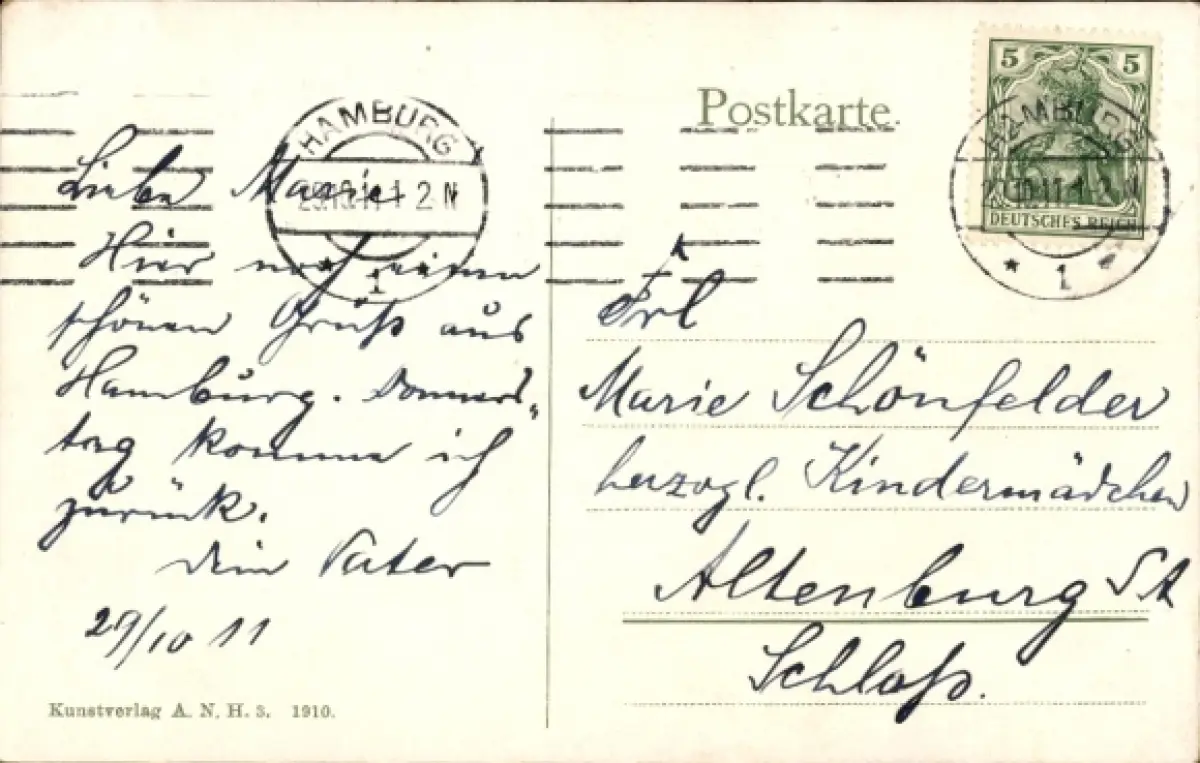 Postkarte.
5 5
DEUTSCHES REICH
HAMBURG
29.10.11.1-2 N
* 1 *
HAMBURG
29.10.11.1-2 N
* 1 *
Liebe Marie!
Hier noch einen
schönen Gruß aus
Hamburg. Donners„
tag komme ich
zurück.
Dein Vater
29/10 11
Frl
Marie Schönfelder
herzogl. Kindermädchen
Altenburg S A
Schloß.
Kunstverlag A. N. H. 3. 1910.